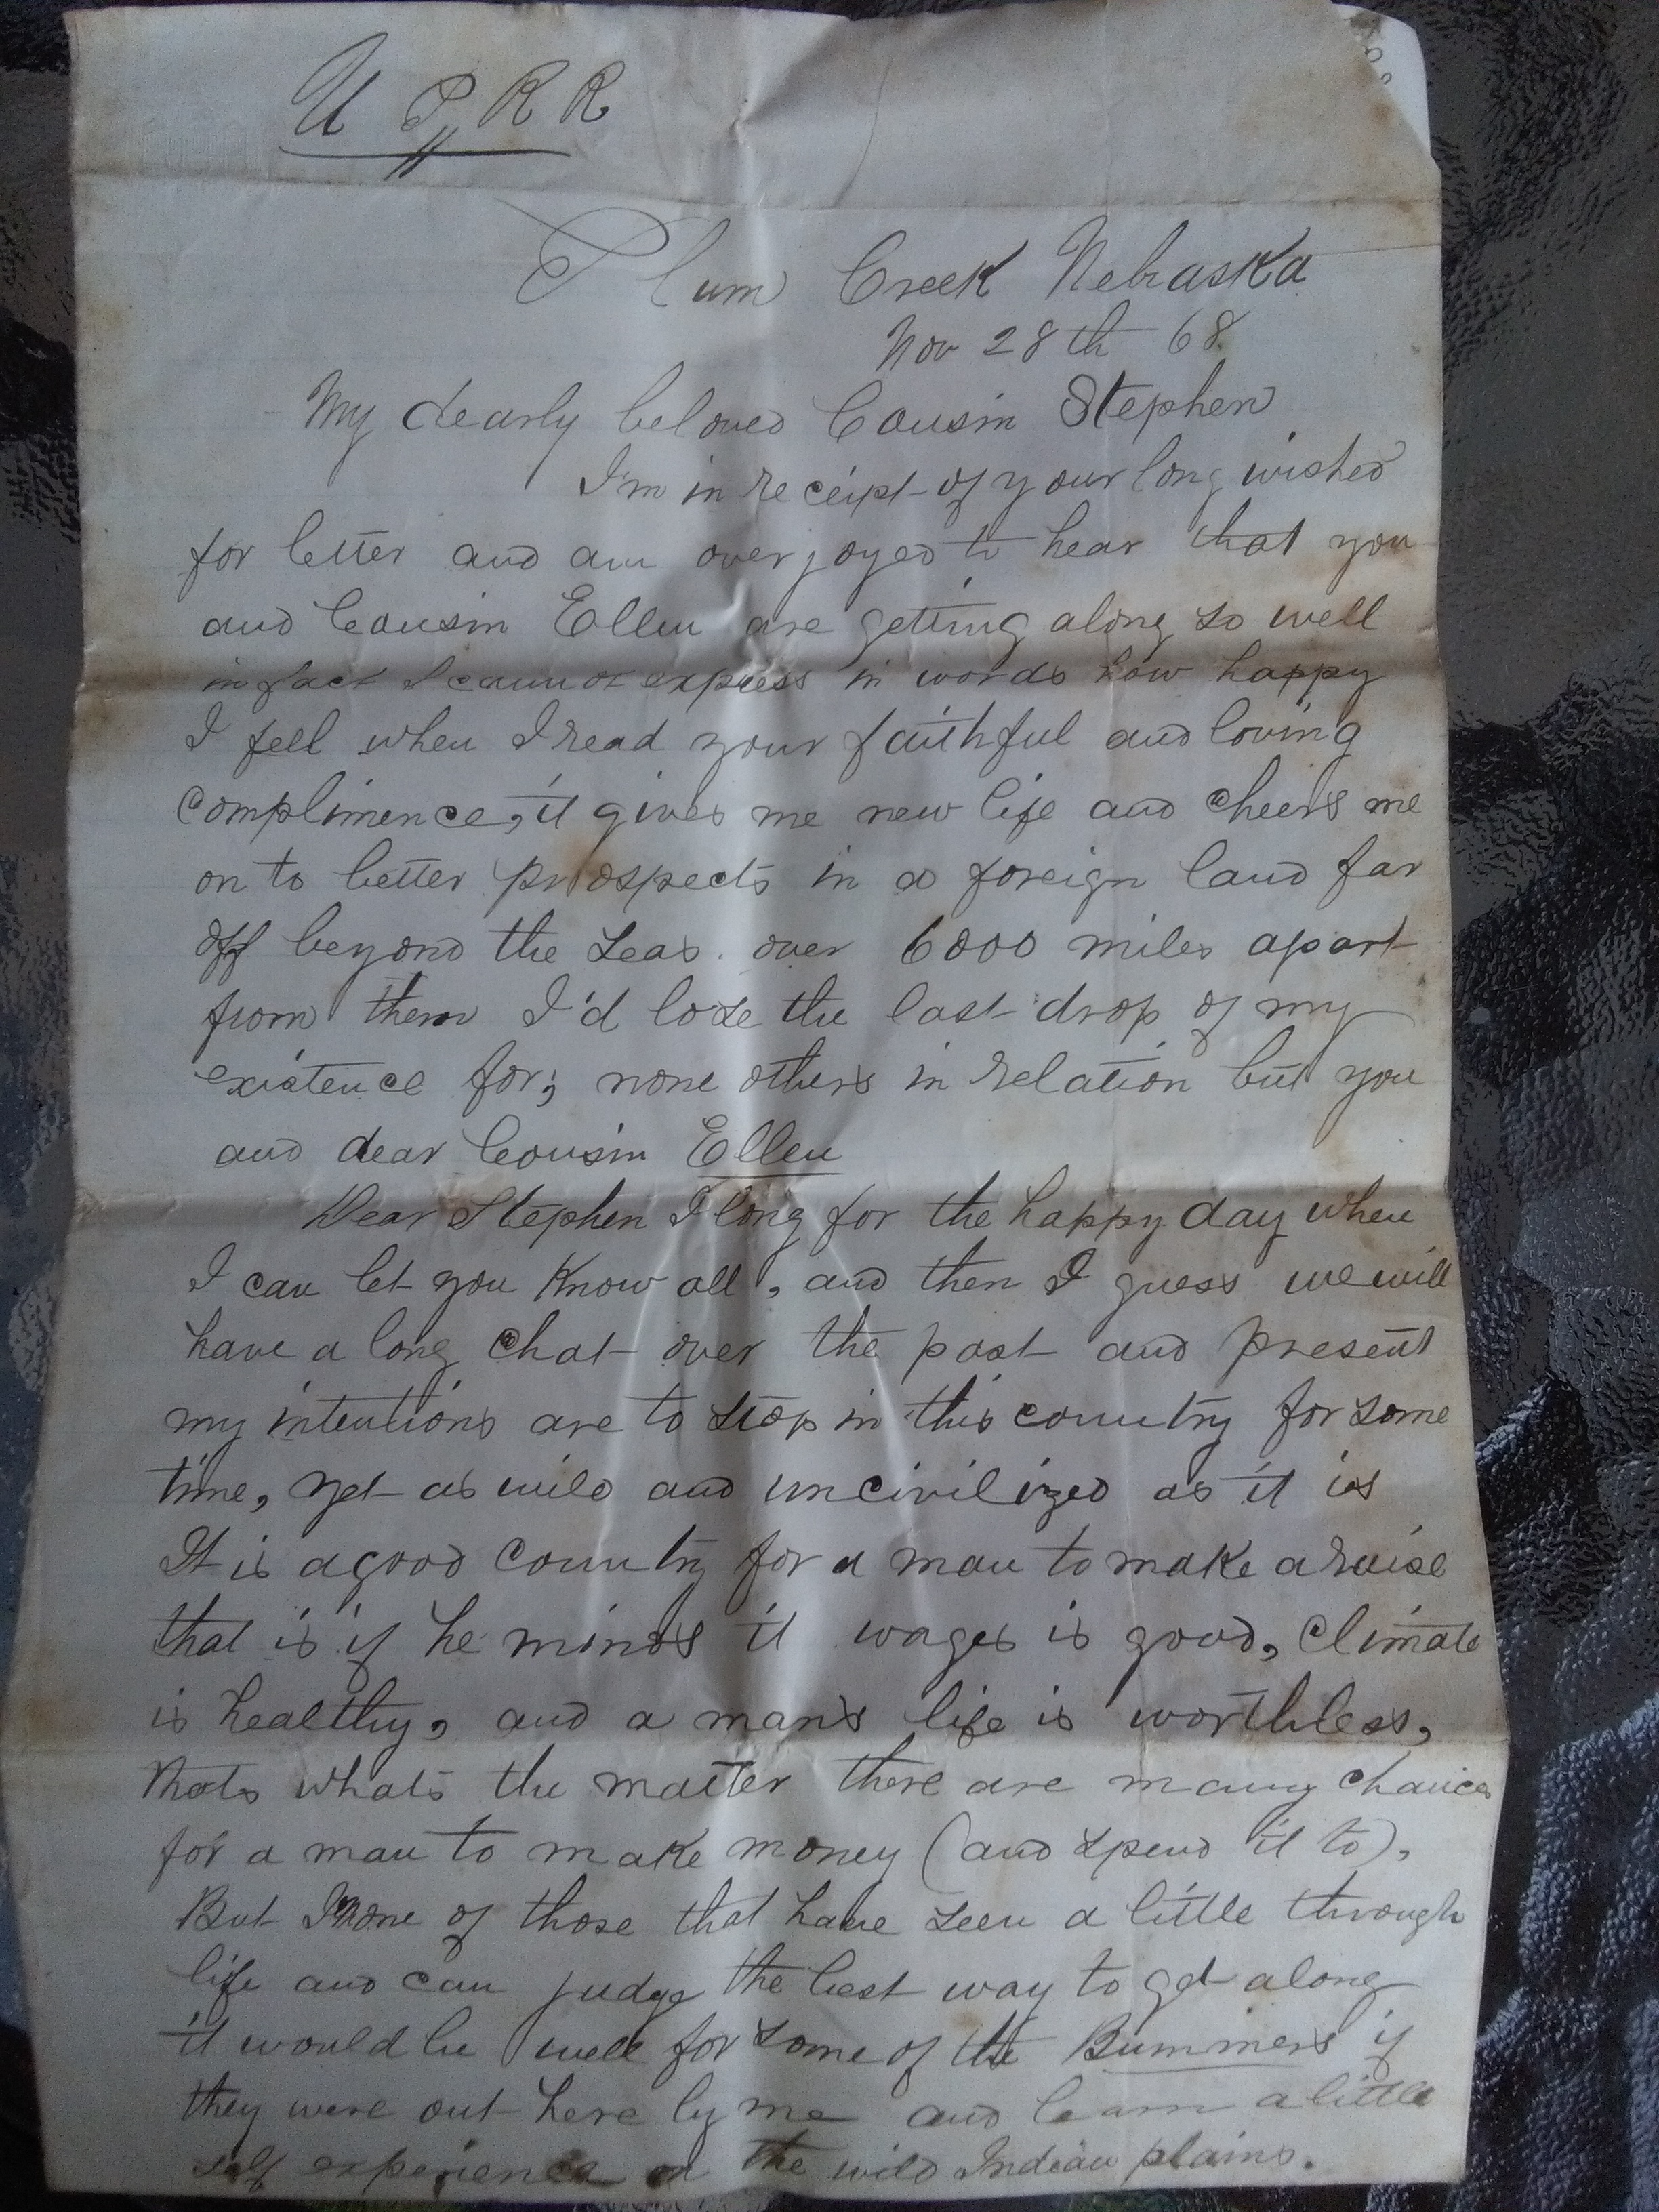 U P R R
Plum Creek Nebraska
Nov 28th 68
My dearly beloved Cousin Stephen
I'm in receipt of your long wished
for letter and am over joyed to hear that you
and Cousin Ellen are geting along so well
in fact I cannot express in words how happy
I fell when I read your faithful and loving
complimence, it gives me new life and cheers me
on to better prospects in a foreign land far
off beyond the seas. over 6000 miles apart
from them I'd lose the last drop of my
existence for; none others in relation but you
and dear Cousin Ellen
Dear Stephen I long for the happy day when
I can let you know all, and then I guess we will
have a long chat over the past and present
my intentions are to stop in this country for some
time, yet as wild and uncivilized as it is
It is a good country for a man to make a raise
that is if he minds it wages is good, climate
is healthy, and a man's life is worthless,
thats whats the matter there are many chances
for a man to make money (and spend it to).
But I'm one of those that have seen a little through
life and can judge the best way to get along
it would be well for some of the Bummers if
they were out here by me and learn a little
self experience on the wild Indian plains.